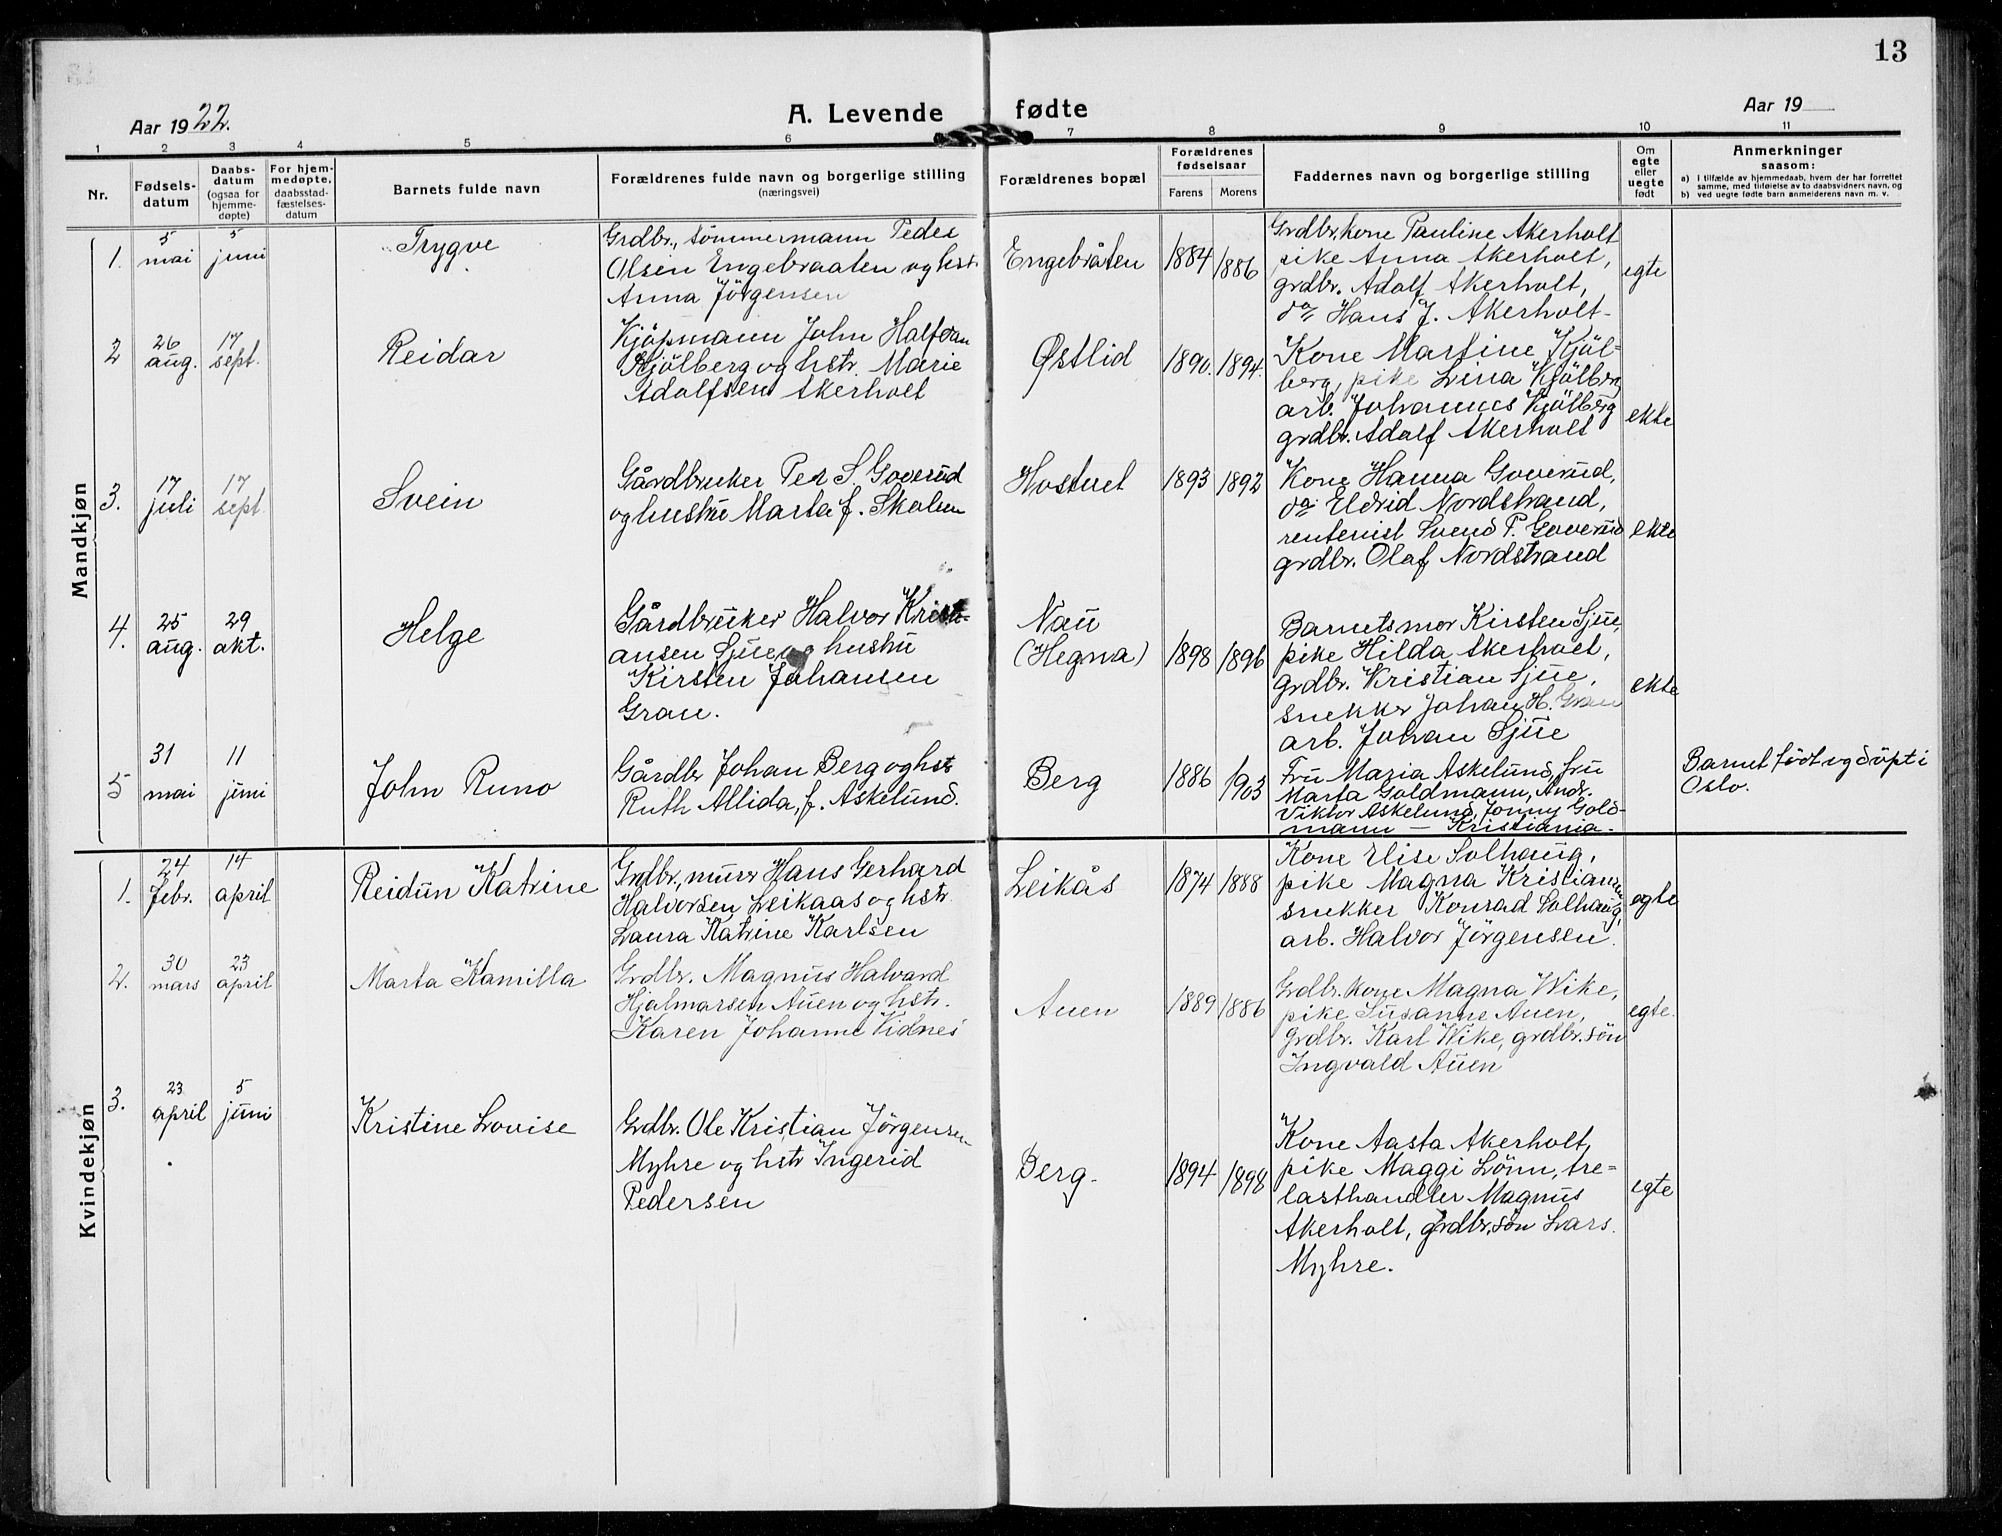 13
Aar 1922.
A. Levende fødte
Aar 19
1 2 3 4 5 6 7 8 9 10 11
Nr.
Fødsels-
datum
Daabs-
datum
(ogsaa for
hjemme-
døpte)
For hjem-
medøpte,
daabsstad-
fæstelses-
datum
Barnets fulde navn
Forældrenes fulde navn og borgerlige stilling
(næringsvei)
Forældrenes bopæl
Forældrenes
fødselsaar
Farens Morens
Faddernes navn og borgerlige stilling
Om
egte
eller
uegte
født
Anmerkninger
saasom:
a) I tilfælde av hjemmedaab, hvem der har forrettet
samme, med tilføielse av to daabsvidners navn, og
b) ved uegte fødte barn anmelderens navn m. v.
Mandkjøn
1.
5
mai
5
juni
Trygve
Grdbr., tömmermann Peder
Olsen Engebraaten og hst.
Anna Jörgensen
Engebråten
1884 1886
Grdbr.kone Pauline Akerholt
pike Anna Akerholt,
grdbr. Adolf Akerholt,
do Hans J. Akerholt-
egte
2
26
aug.
17
sept.
Reidar
Kjöpmann John Halfdan
Kjölberg og hstr. Marie
Adolfsen Akerholt
Østlid
1890. 1894.
Kone Martine Kjöl-
berg, pike Lina Kjölberg
arb. Johannes Kjölberg
grdbr. Adolf Akerholt
ekte
3.
17
juli
17
sept.
Svein
Gårdbruker Ped S. Goverud
og hustru Marta f. Skolem
Hostvet
1893 1892
Kone Hanna Goverud,
do Eldrid Nordstrand,
rentenist Svend P. Goverud
grdbr. Olaf Nordstrand
ekte
4.
25
aug.
29
okt.
Helge
Gårdbruker Halvor Kristi-
ansen Sjue og hustru
Kirsten Johansen
Gran.
Nau
(Hegna)
1898 1896
Barnets mor Kirsten Sjue,
pike Hilda Akerholt,
grdbr. Kristian Sjue,
snekker Johan H. Gran
arb. Johan Sjue
ekte
5
31
mai
11
juni
John Runo
Gårdbr Johan Berg og hst
Ruth Allida, f. Askelund.
Berg
1886 1903
Fru Maria Askelund, fru
Marta Goldmann, Andr.
Viktor Askelund, Jonny Gold-
mann - Kristiania.
Barnet född og döpt i
Oslo.
Kvindekjøn
1.
24
febr.
14
april
Reidun Katrine
Grdbr., murer Hans Gerhard
Halvorsen Leikaas og hstr.
Laura Katrine Karlsen
Leikås
1874 1888
Kone Elise Solhaug,
pike Magna Kristiansen
snekker Konrad Solhaug,
arb. Halvor Jörgensen.
egte
2.
30
mars
23
april
Marta Kamilla
Grdbr. Magnus Halvard
Hjalmarsen Auen og hstr.
Karen Johanne Vidnes
Auen
1889 1886
Grdbr.kone Magna Wike,
pike Susanne Auen,
Grdbr. Karl Wike, grdbr.sön
Ingvald Auen
egte.
3.
23
april
5
juni
Kristine Lovise
Grdbr. Ole Kristian Jörgensen
Myhre og hstr Ingerid
Pedersen
Berg.
1894 1898
Kone Aasta Akerholt,
pike Maggi Lönn, tre-
lasthandler Magnus
Akerholt, grdbr.sön Lars
Myhre.
egte